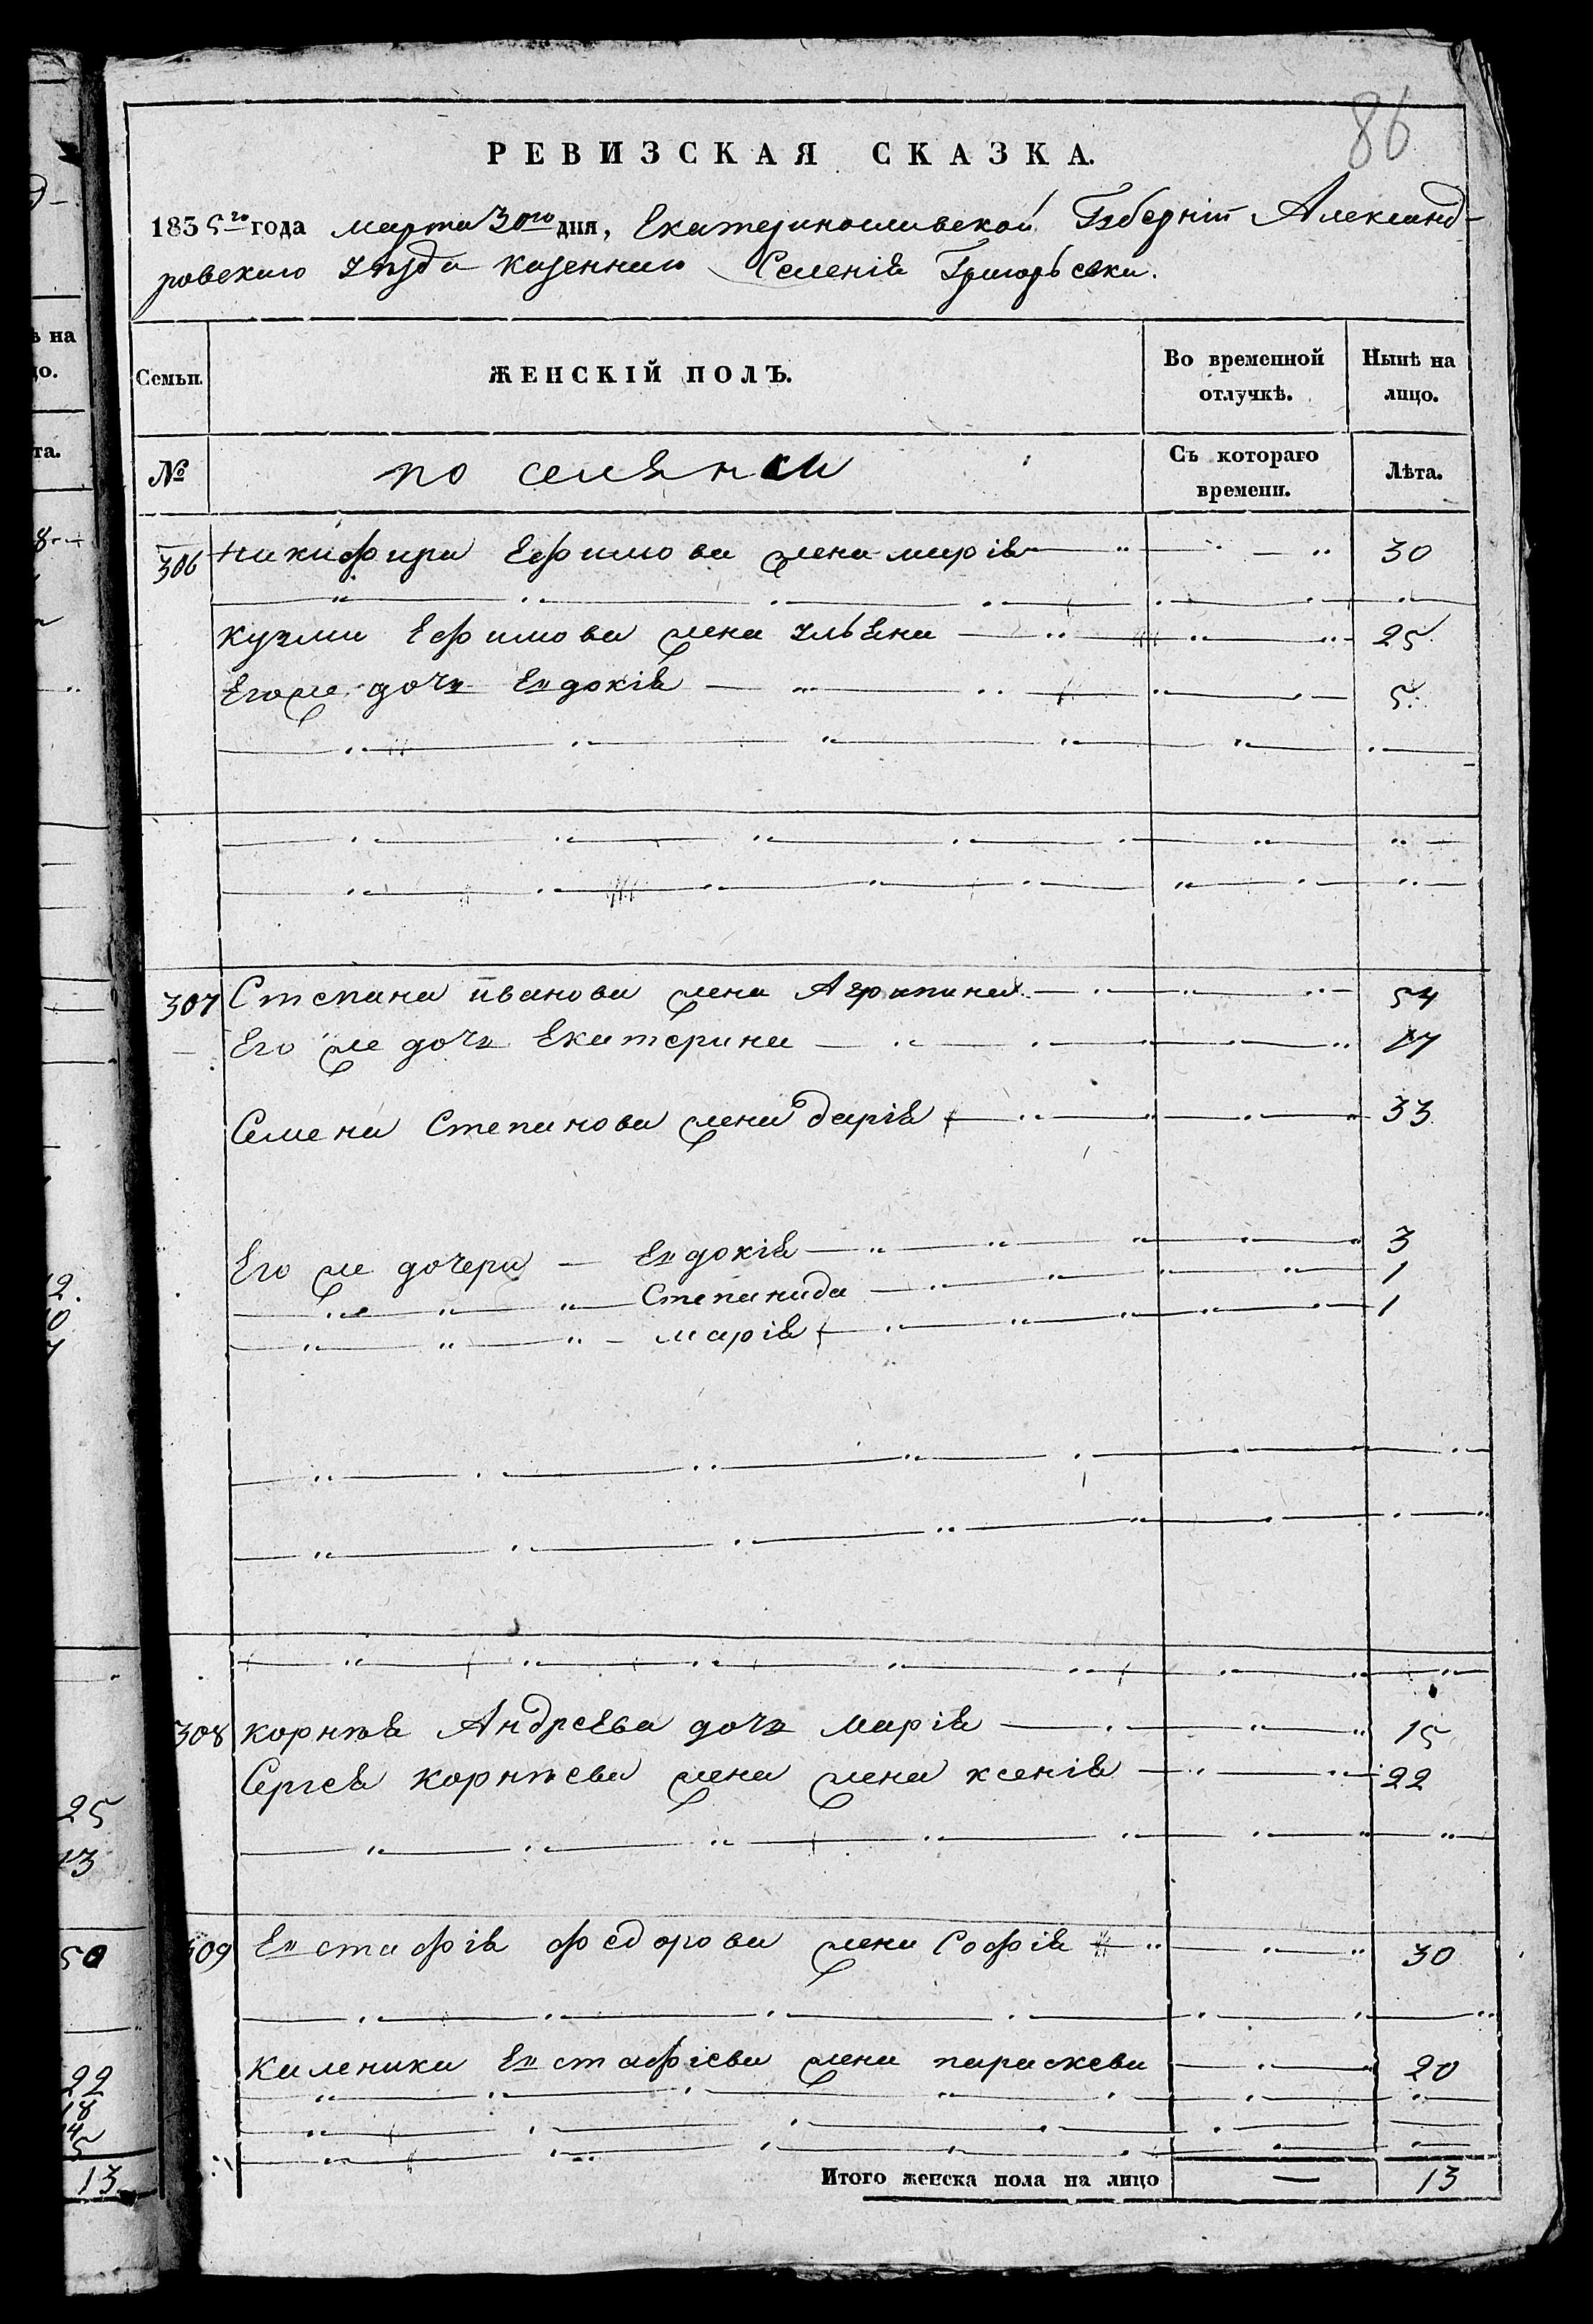 86
РЕВИЗСКАЯ СКАЗКА.
1835го года марта 30го дня, Екатеринославской Губерніи Александ-
ровскаго уѣзда казеннаго Селенія Григорьевки.
Семьи.
ЖЕНСКІЙ ПОЛЪ.
Во временной отлучкѣ.
Нынѣ на лицо.
№
поселянки
Съ котораго времени.
Лѣта.
306 Никифора Ефимова жена марія 30
кузми Ефимова жена ульяна 25
Его же дочь Евдокія 5
307 Степана иванова жена Агрипина 54
Его же дочь Екатерина 17
Семена Степанова жена дарія 33
Его же дочери Евдокія 3
Степанида 1
марія 1
308 корнѣя Андреева дочь марія 15
Сергея корнѣева жена жена ксенія 22
309 Евстафія федорова жена Софія 30
каленика Евстафіева жена параскева 20
Итого женска пола на лицо — 13
ѣ на
цо.
та.
25
13
50
22
18
14
5
13